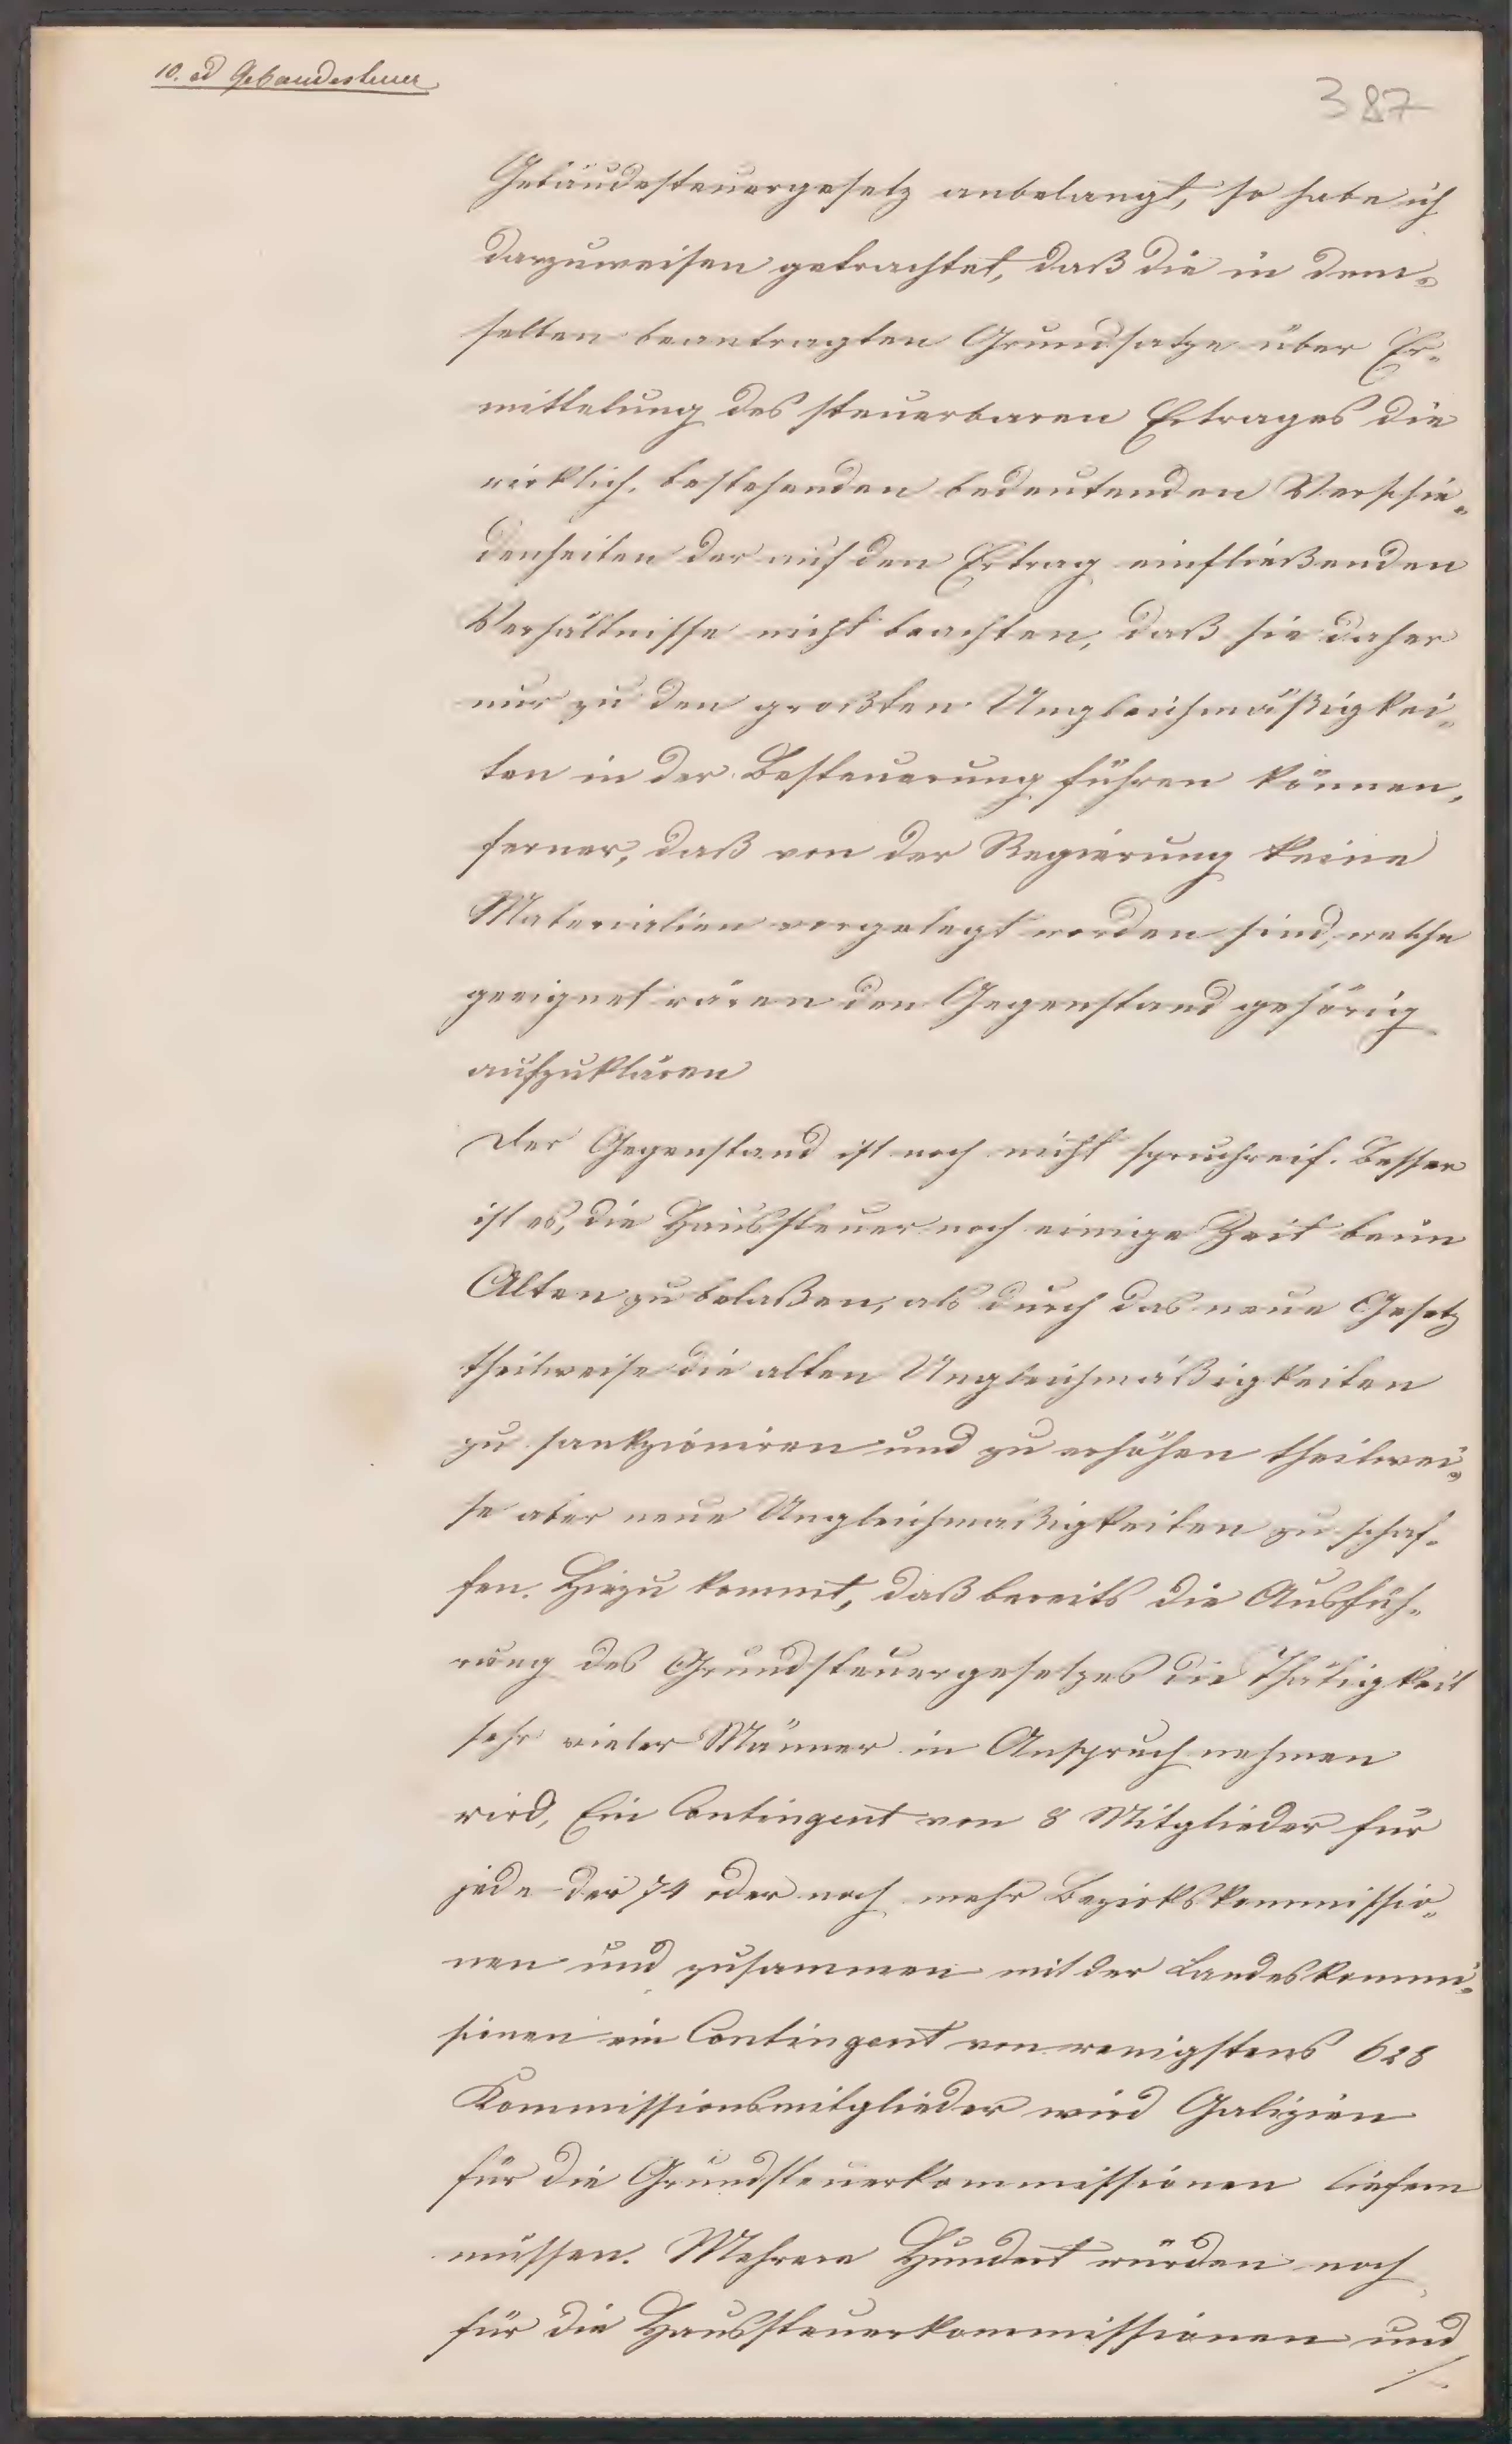 10. ad Gebaudesteuer
387
Gebäudesteuergesetz anbelangt, so habe ich
darzuweisen getrachtet, daß die in dem-
selben beantragten Grundsatze über Er-
mittelung des steuerbaren Ertrages die
wirklich bestehenden bedeutenden Verschie-
denheiten der auf den Ertrag einfließenden
Verhältnisse nicht beachten, daß sie daher
nur zu den großten Ungleichmäßigkei-
ten in der Besteuerung führen können,
ferner, daß von der Regierung keine
Materialien vorgelegt worden sind, welche
geeignet wären den Gegenstand gehörig
aufzuklären
Der Gegenstand ist noch nicht spruchreif. Besser
ist es, die Haussteuer noch einige Zeit beim
Alten zu belaßen, als durch das neue Gesetz
theilweise die alten Ungleichmäßigkeiten
zu sankzioniren und zu erhöhen theilwei-
se aber neue Ungleichmaßigkeiten zu schaf-
fen. Hiezu kommt, daß bereits die Ausfüh-
rung des Grundsteuergesetzes die Thätigkeit
sehr vieler Männer in Anspruch nehmen
wird, Ein Contingent von 8 Mitglieder für
jede der 74 oder noch mehr Bezirkskommissio-
nen und zusammen mit der Landeskommi-
sionen ein Contingent von wenigstens 628
Kommissionsmitglieder wird Galizien
für die Grundsteuerkommissionen liefern
müssen. Mehrere Hundert würden noch
für die Haussteuerkommissionen und
/.